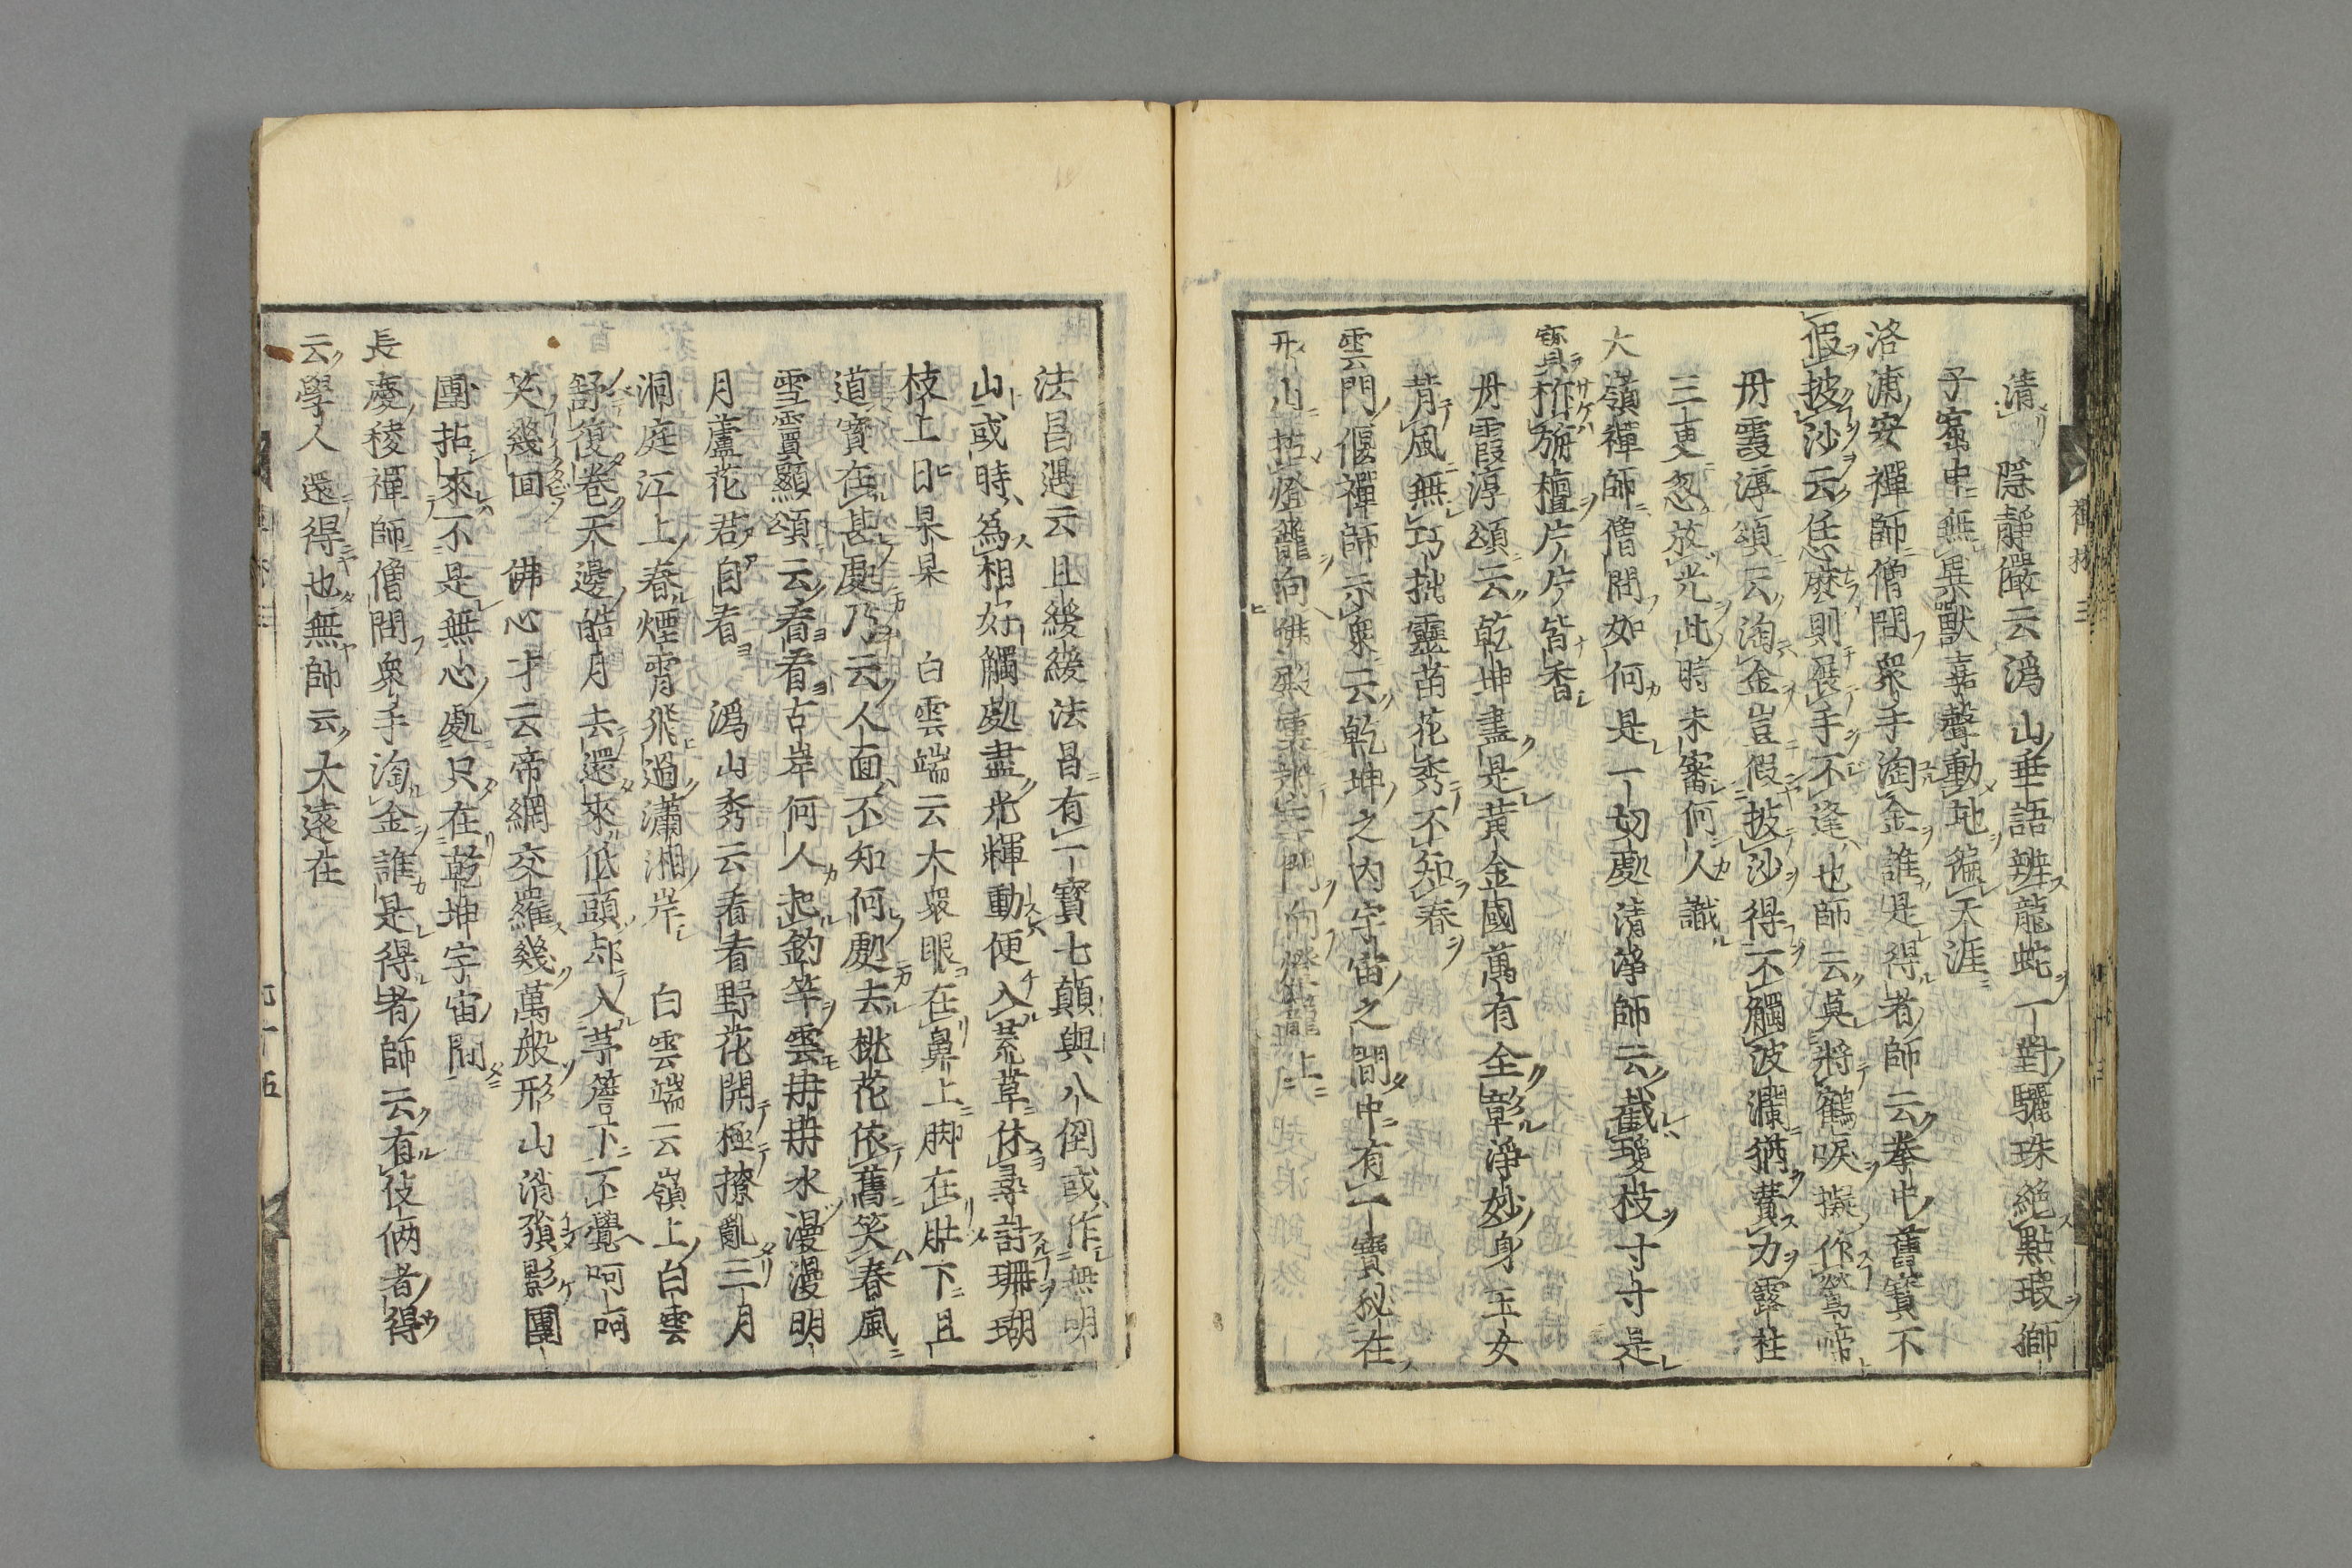 清 隱靜儼云潙山垂語辨龍蛇一對驪珠絕點瑕獅
子窟中無異獸嘉聲動地徧天涯
洛浦安禪師僧問衆手淘金誰是得者師云拳中舊寶不
假披沙云恁麽則展手不逢也師云莫將鶴唳擬作鶯啼
丹霞淳頌云淘金豈假披沙得不觸波瀾猶費力露柱
三更忽放光此時未審何人識
大嶺禪師僧問如何是一切處清淨師云截瓊枝寸寸是
寳柝旃檀片片皆香
丹霞淳頌云乾坤盡是黃金國萬有全彰淨妙身玉女
背風無巧拙靈苗花秀不知春
雲門偃禪師示衆云乾坤之內宇宙之間中有一寶秘在
形山拈燈籠向佛殿裏將三門向燈籠上
法昌遇云且緩緩法昌有一寶七顛與八倒或作無明
山或時爲相好觸處盡光輝動便入荒草休尋討珊瑚
枝上日杲杲 白雲端云大衆眼在鼻上脚在肚下且
道寶在甚處乃云人面不知何處去桃花依舊笑春風
雪竇顯頌云看看古岸何人把釣竿雲冉冉水漫漫明
月蘆花君自看 潙山秀云看看野花開極撩亂三月
洞庭江上春煙霄飛過瀟湘岸 白雲端云嶺上白雲
舒復卷天邊皓月去還來低頭却入茅簷下不覺呵呵
笑幾回 佛心才云帝網交羅幾萬般形山消殞影團
團拈來不是無心處只在乾坤宇宙間
長慶稜禪師僧問衆手淘金誰是得者師云有伎倆者得
云學人還得也無師云大遠在